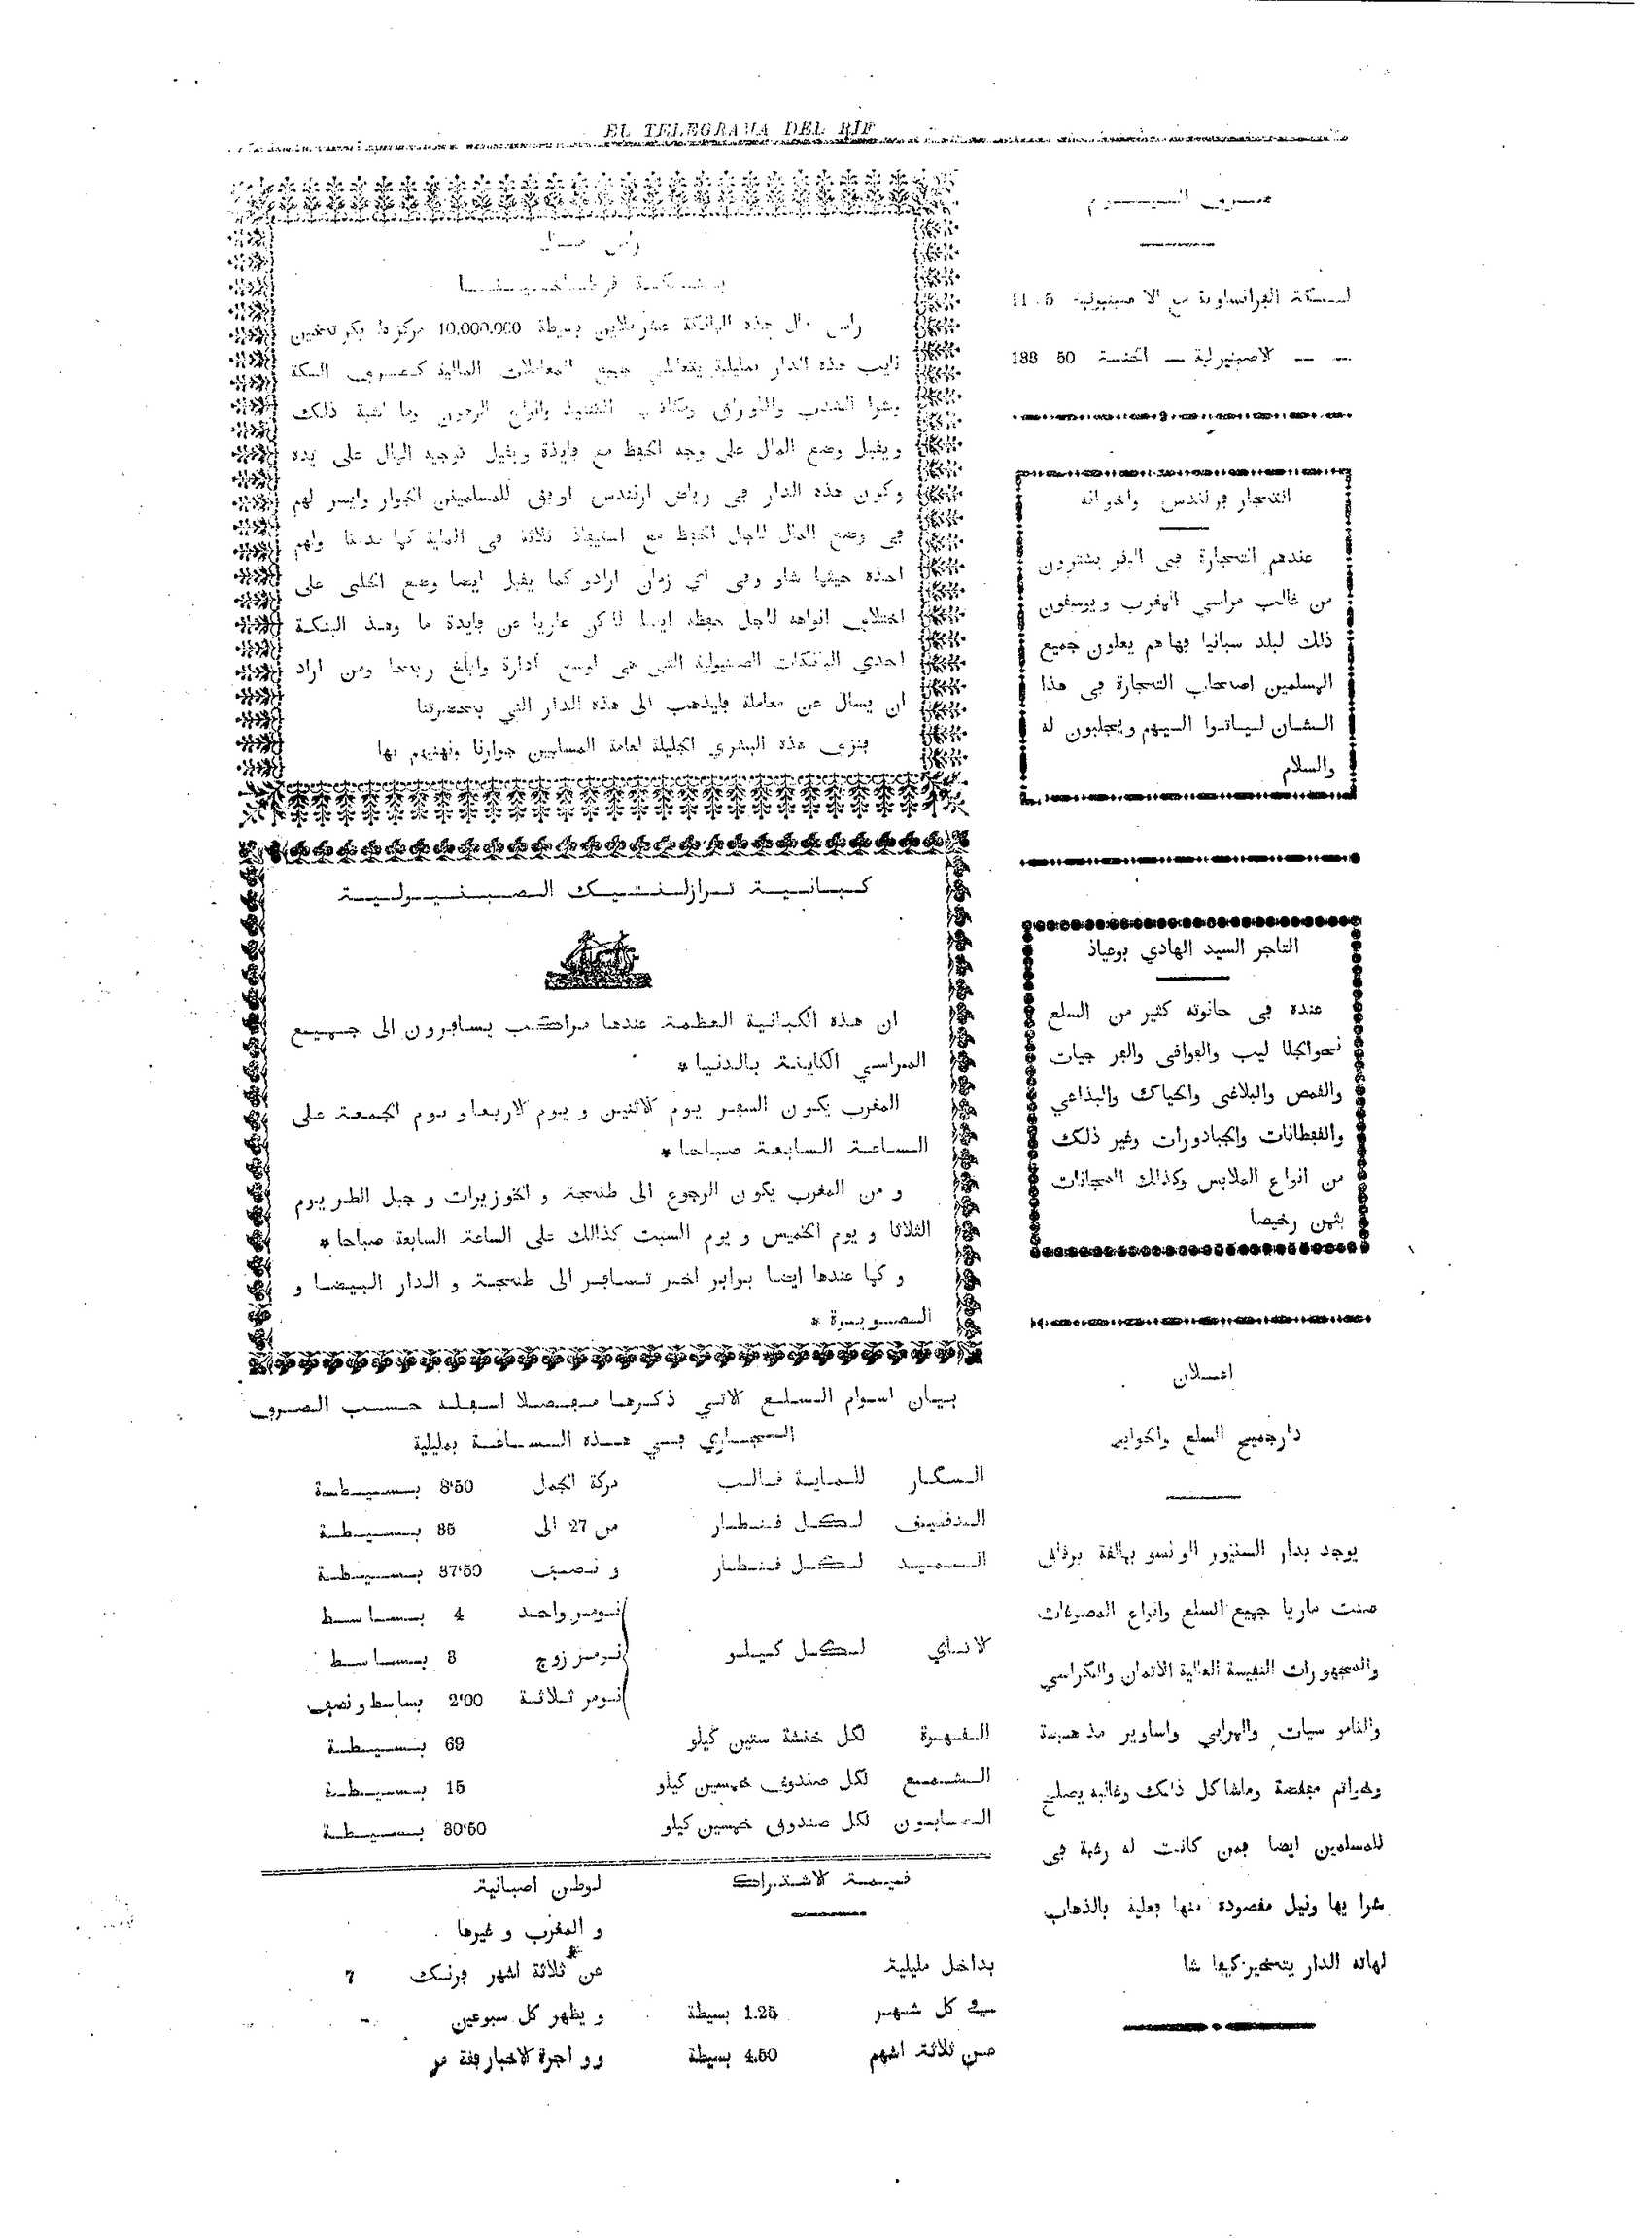 EL TELEGRAMA DEL RIF
صرف اليـوم
السكة الفرانساوية مع الاصبنيولية
— — الاصبنيولية — الحسنة 50 188
التجار فرنندس واخوانه
عندهم التجارة في البقر يشترون
من غالب مراسي المغرب ويوسفون
ذلك لبلد سبانيا فهاهم يعلون جميع
المسلمين اصحاب التجارة في هذا
الشان لـياتوا اليهم ويجلبون له
والسلام
التاجر السيد الهادي بوعياذ
عنده في حانوته كثير من السلع
نحو الجلا ليب والقوافي والفر جيات
والقمص والبلاغي والحياك والبذاعي
والقفطانات والجبادورات وغير ذلك
من انواع الملابس وكذالك المجانات
بثمن رخيصا
اعـلان
دار جميع السلع والحوايج
يوجد بدار السنيور الونسو بهالفة برفاق
صنت ماريا جميع السلع وانواع المصوغات
والمجهورات النفيسة الغالية الاثمان والكراسي
والنامو سيات والمرابي واساوير مذهبة
وخواتم مفضضة وماشاكل ذلك وغالبه يصلح
للمسلمين ايضا فمن كانت له رغبة في
شرا يها ونيل مقصوده منها فعليه بالذهاب
لهاته الدار يتخير كيفما شا
راس مـال
بنـكـة
راس مال هذه البانكة عشر ملاين بسيطة 10,000,000 مركزها
نايب هذه الدار بمليلية يتعاطى جميع المعاملات المالية كـصرف السكة
وشرا الذهب والاوراق وانواع الرهون وما اشبه ذلك
ويقبل وضع المال على وجه الحفظ مع فايدة ويقبل توجيه المال على يده
وكون هذه الدار في رياض ارنندس اوفق للمسلمين الجوار وايسر لهم
في وضع المال لاجل الحفظ مع استيفاذ ثلاثة في الماية كما قدمنا ولهم
اخذه حيثما شاو وفي اي زمان ارادو كما يقبل ايضا وضع الحلي على
اختلاف انواعه لاجل حفظه ايضا لاكن عاريا عن فايدة ما وهذ البنكة
احدي البانكات الصبنيولية التي هي اوسع ادارة وابلغ ربحا ومن اراد
ان يسال عن معاملة فليذهب الى هذه الدار التي بحضرتنا
بنزف هذه البشري الجليلة لعامة المسلمين جوارنا ونهنيهم بها
كـبـانـيـة تـرازلـنـتـيـك الـصـبـنـيـولـيـة
ان هذه الكبانية العظمة عندها مراكب يسافرون الى جـمـيـع
المراسي الكاينة بالدنيا *
المغرب يكون السفر يوم لاثنين و يوم لاربعاو يوم الجمعة على
الساعة السابعة صباحا *
و من المغرب يكون الرجوع الى طنجة و الخوزيرات و جبل الطر يوم
الثلاثا و يوم الخميس و يوم السبت كذالك على الساعة السابعة صباحا *
و كما عندها ايضا بوابر اخر تسافر الى طنجة و الدار البيضا و
الـصـويـرة *
بيان اسوام السلع لاتي ذكرها مفصلا اسفله حسب الصرف
الـجـاري فـي هـذه الـسـاعـة بمليلية
السكـار للـمـايـة قـالـب مركة الجمل 8'50 بـسـيـطـة
الـدقيق لـكـل قـنـطـار من 27 الى 35 بـسـيـطـة
السميد لـكـل قـنـطـار و نـصـف 37'50 بـسـيـطـة
نـومـر واحـد 4 بـسـاسـط
لاتـاي لـكـل كـيـلـو نـومـر زوج 3 بـسـاسـط
نـومر ثـلاثـة 2'00 بساسط و نصف
الـقـهـوة لكل خنشة ستين كيلو 69 بـسـيـطـة
الـشـمـع لكل صندوق خمسين كيلو 15 بـسـيـطـة
الـصـابـون لكل صندوق خمسين كيلو 30'50 بـسـيـطـة
قـيـمـة لاشـتـراك
بداخل مليلية
في كل شهر 1.25 بسيطة
عن ثلاثة اشهر 4.50 بسيطة
لوطن اصبانية
و المغرب و غيرها
عن ثلاثة اشهر فرنك 7
و يظهر كل سبوعين
وو اجرة لاخبار